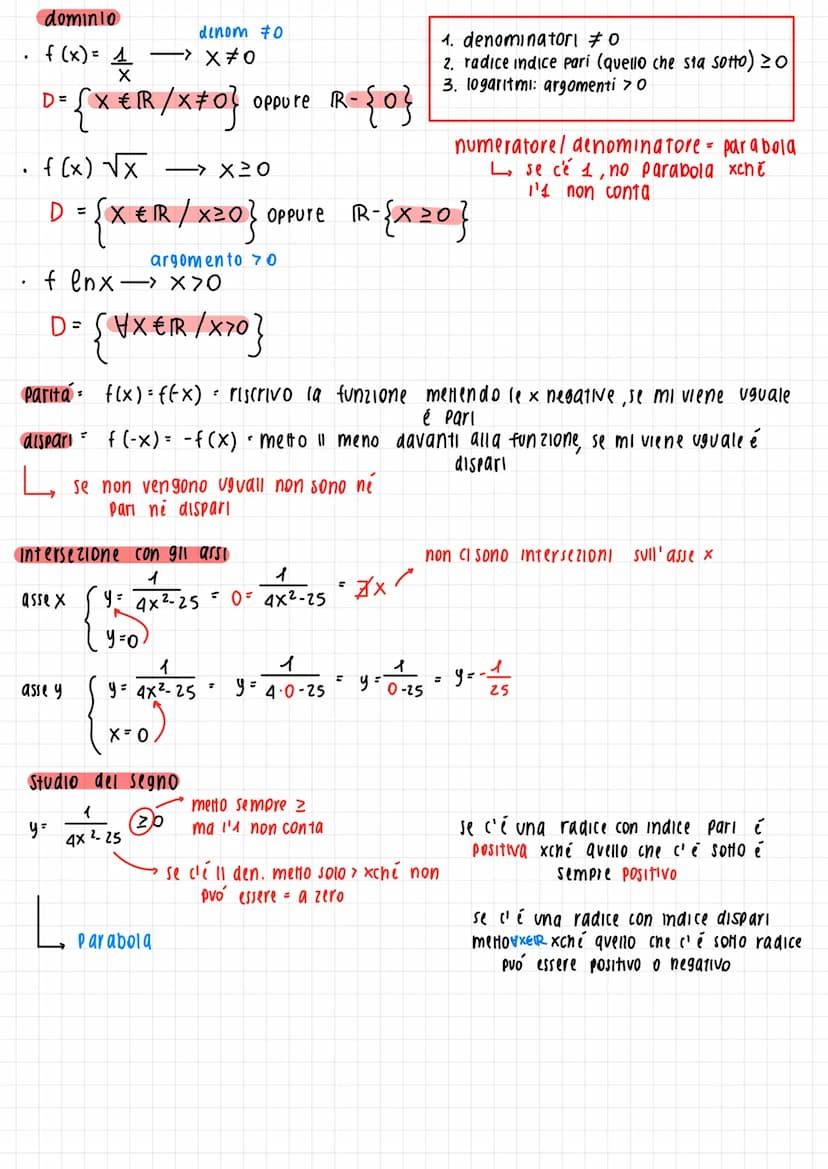 dominio
denom ≠0
· f(x)= 1/x → x≠0
D= {x € ℝ / x≠0} oppure ℝ-{0}
1. denominatori ≠ 0
2. radice indice pari (quello che sta sotto) ≥ 0
3. logaritmi: argomenti > 0
numeratore/denominatore = parabola
↳ se c'é 1, no parabola xché
l'1 non conta
· f(x) √x → x≥0
D = {x € ℝ / x≥0} oppure ℝ-{x≥0}
argomento >0
· f lnx → x>0
D = {∀x€ℝ /x>0}
parità: f(x)=f(-x) = riscrivo la funzione mettendo le x negative, se mi viene uguale
é pari
dispari = f(-x)= -f(x) · metto il meno davanti alla funzione, se mi viene uguale é
dispari
↳ se non vengono uguali non sono né
pari né dispari
intersezione con gli assi
non ci sono intersezioni sull'asse x
asse x { y= 1/4x²-25 = 0= 1/4x²-25 = ∄x
y=0
asse y { y= 1/4x²-25 = y= 1/4·0-25 = y= 1/0-25 = y=-1/25
x=0
studio del segno
y= 1/4x²-25 ≥0
metto sempre ≥
ma l'1 non conta
→ se c'é il den. metto solo > xché non
puó essere = a zero
↳ parabola
se c'é una radice con indice pari é
positiva xché quello che c'é sotto é
sempre positivo
se c'é una radice con indice dispari
metto ∀x€ℝ xché quello che c'é sotto radice
puó essere positivo o negativo